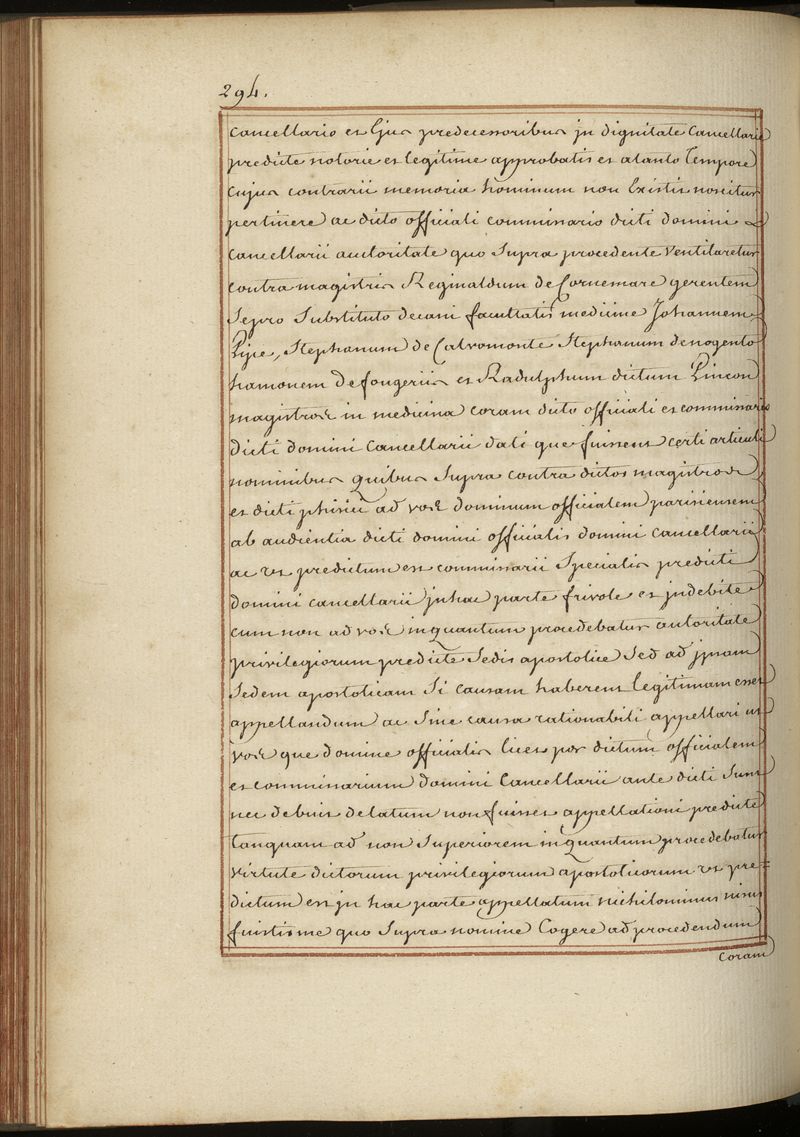 294.
cancellario et Ejus predecessoribus jn dignitate Cancellarie
predicte notorie et legitime approbatis et atanto Tempore
Cujus contrarii memoria hominum non Existit noscitur
pertinere ac dicto officiali commissario dicti domini
Cancellarii auctoritate quo Supra procedente Ventilaretur
contra magistris Reginaldum de Cornemare gerentem
Sepro Substituto decani facultatis medicine Johannem
Pipe, Stephanum de Calvomonte Stephanum denogento
hamonem de fougeriis et Radulphum dictum Pincon
magistros in medicina coram dicto officiali et commissario
Dicti domini Cancellarii dati que fuissent certi articuli
nominibus quibus Supra contra dictos magistros
et dicti phisici ad vos dominum officialem parisiensem
ab audientia dicti domini officialis domini cancellarii
ac ut predictum est commissarii Specialis predicti
domini cancellarii jn hac parte frivole et jndebite
cum non ad vos inquantum procedebatur autoritate
privilegiorum predicte Sedis apostolice Sed ad jpsam
Sedem apostolicam Si causam haberent legitimam esset
appellandum ac Sine causa rationabili appellari ut
vos que domine officialis licet per dictum officialem
et commissarium domini Cancellarii ante dicti Sunt
nec debuit delatum non fuisset appellationi predicte
Tanquam ad non Superiorem inquantum procedebatur
virtute dictorum privilegiorum apostolicorum ut pre
dictum est jn hac parte appellatum nichilominus nisus
fuistis me quo Supra nomine Cogere ad procedendum
Coram